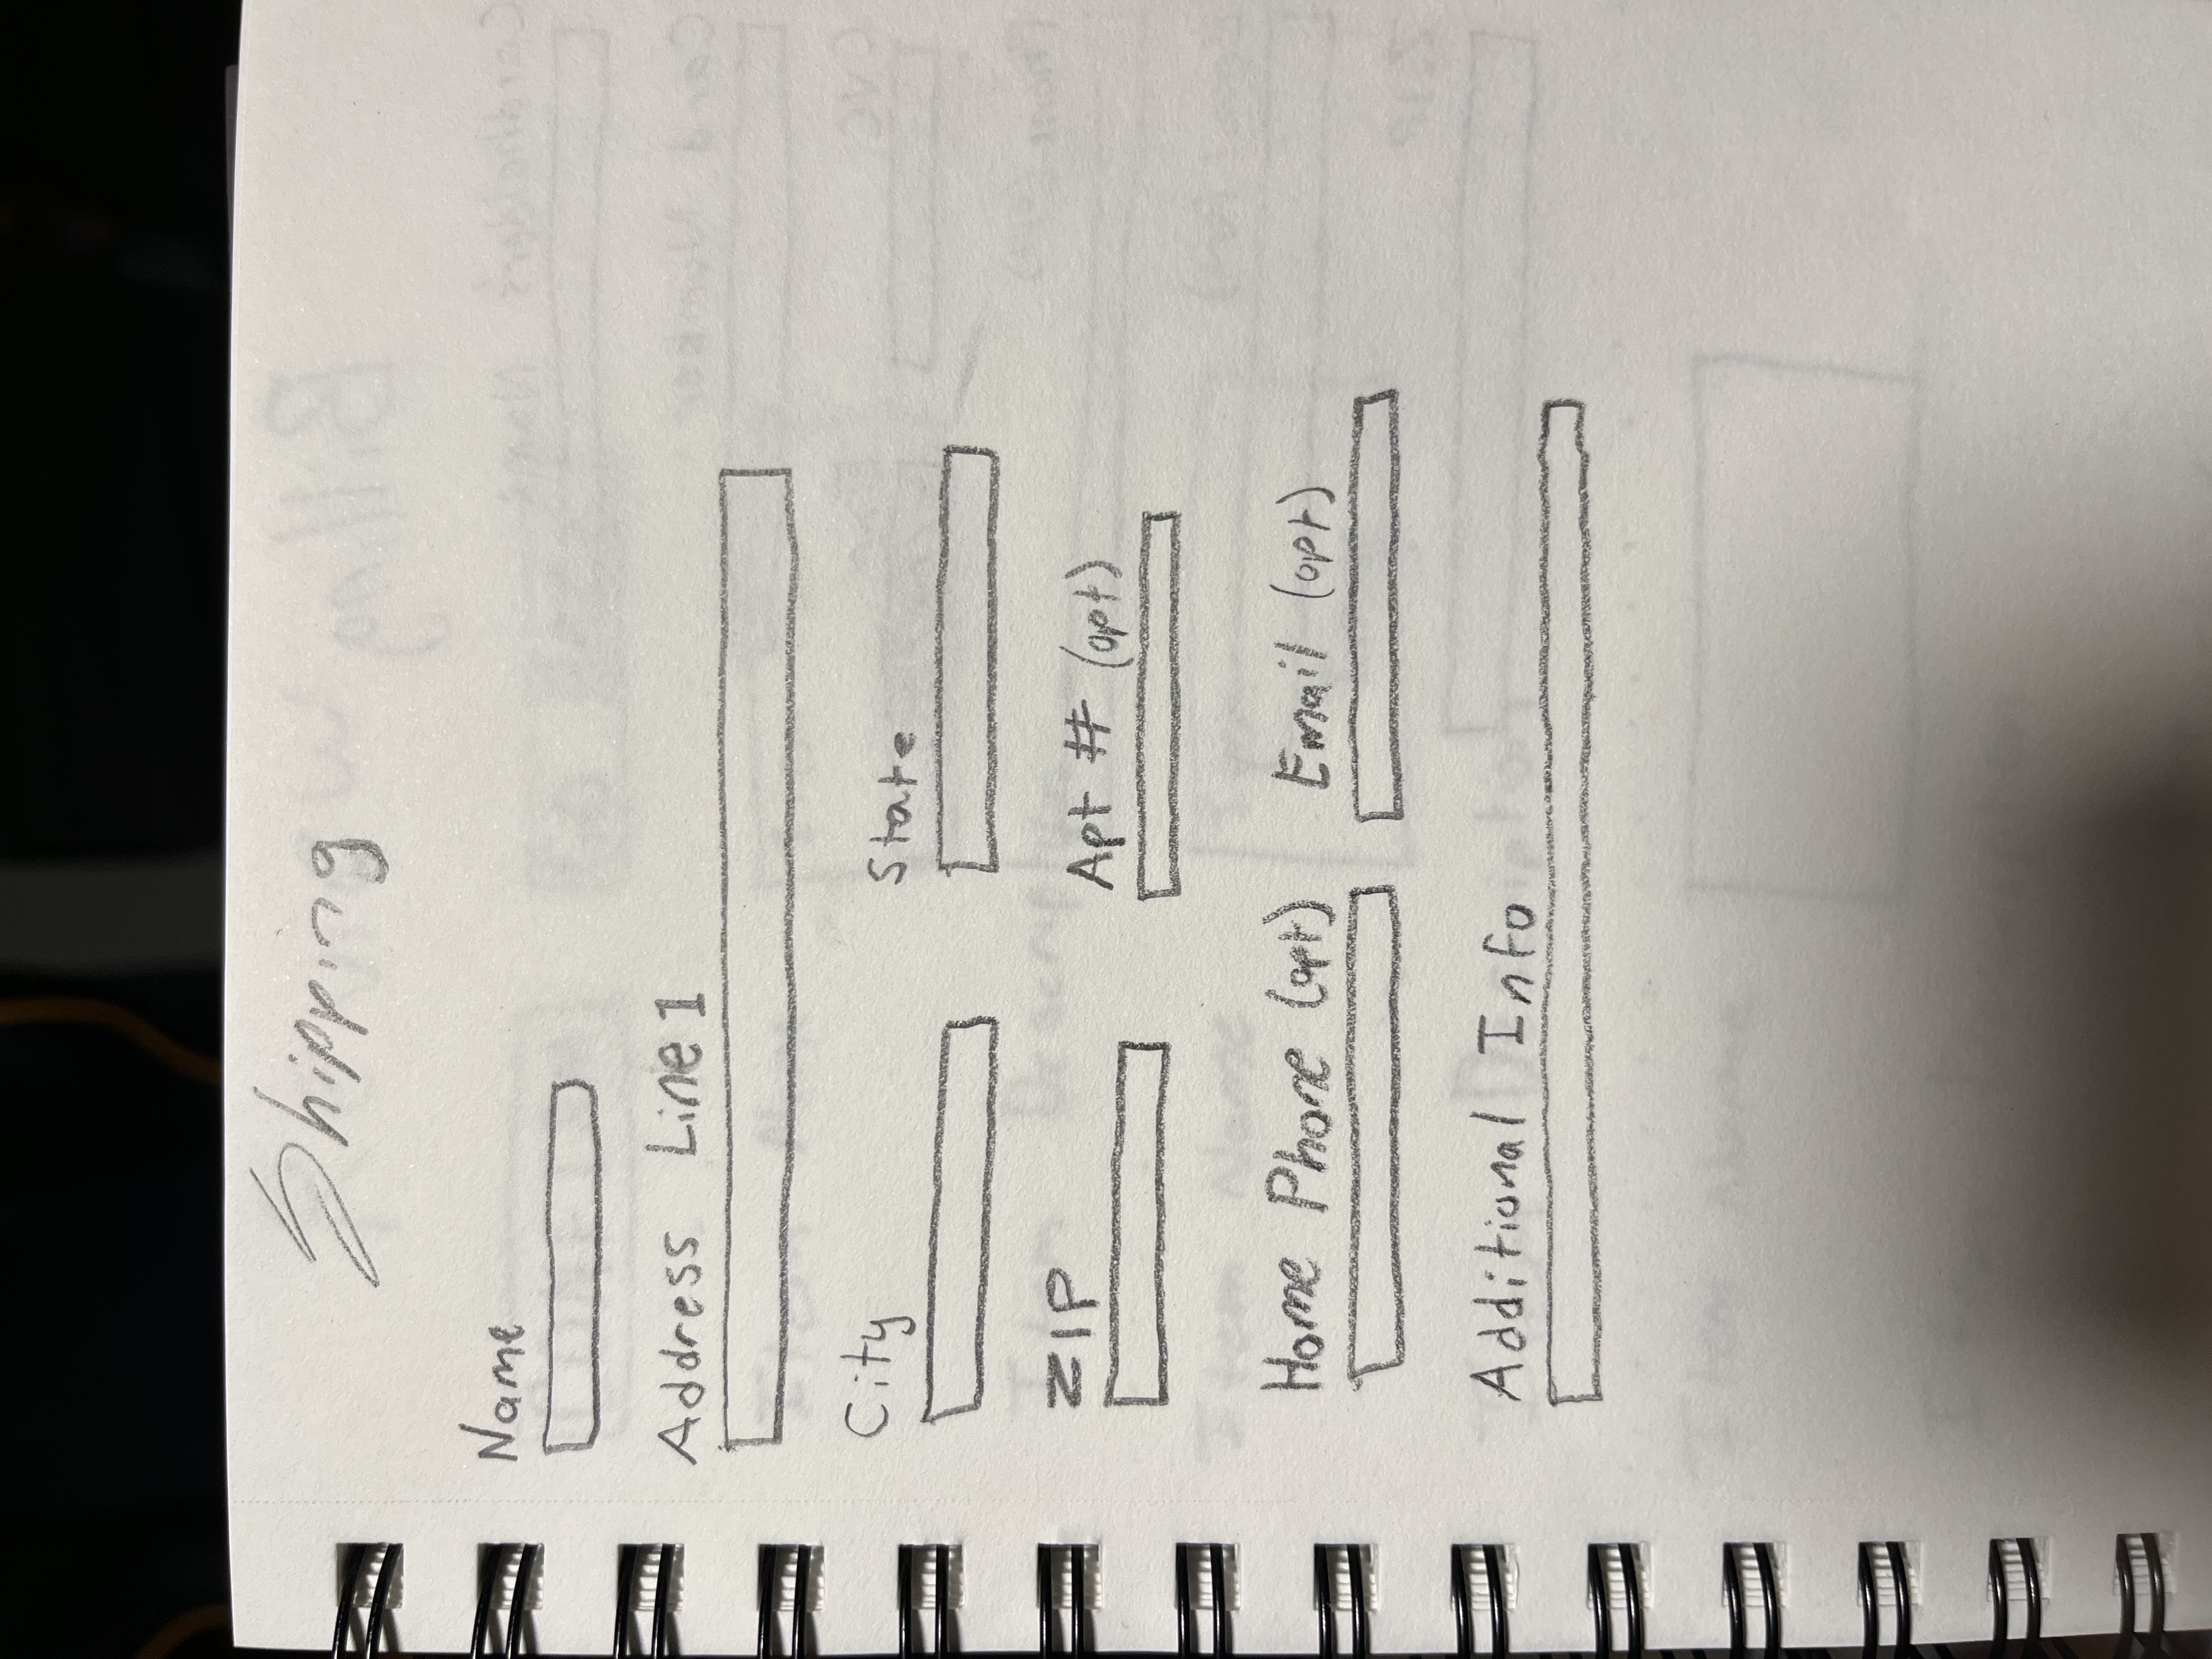 Shipping
Name
Address Line 1
City State
ZIP Apt # (opt)
Home Phone (opt) Email (opt)
Additional Info